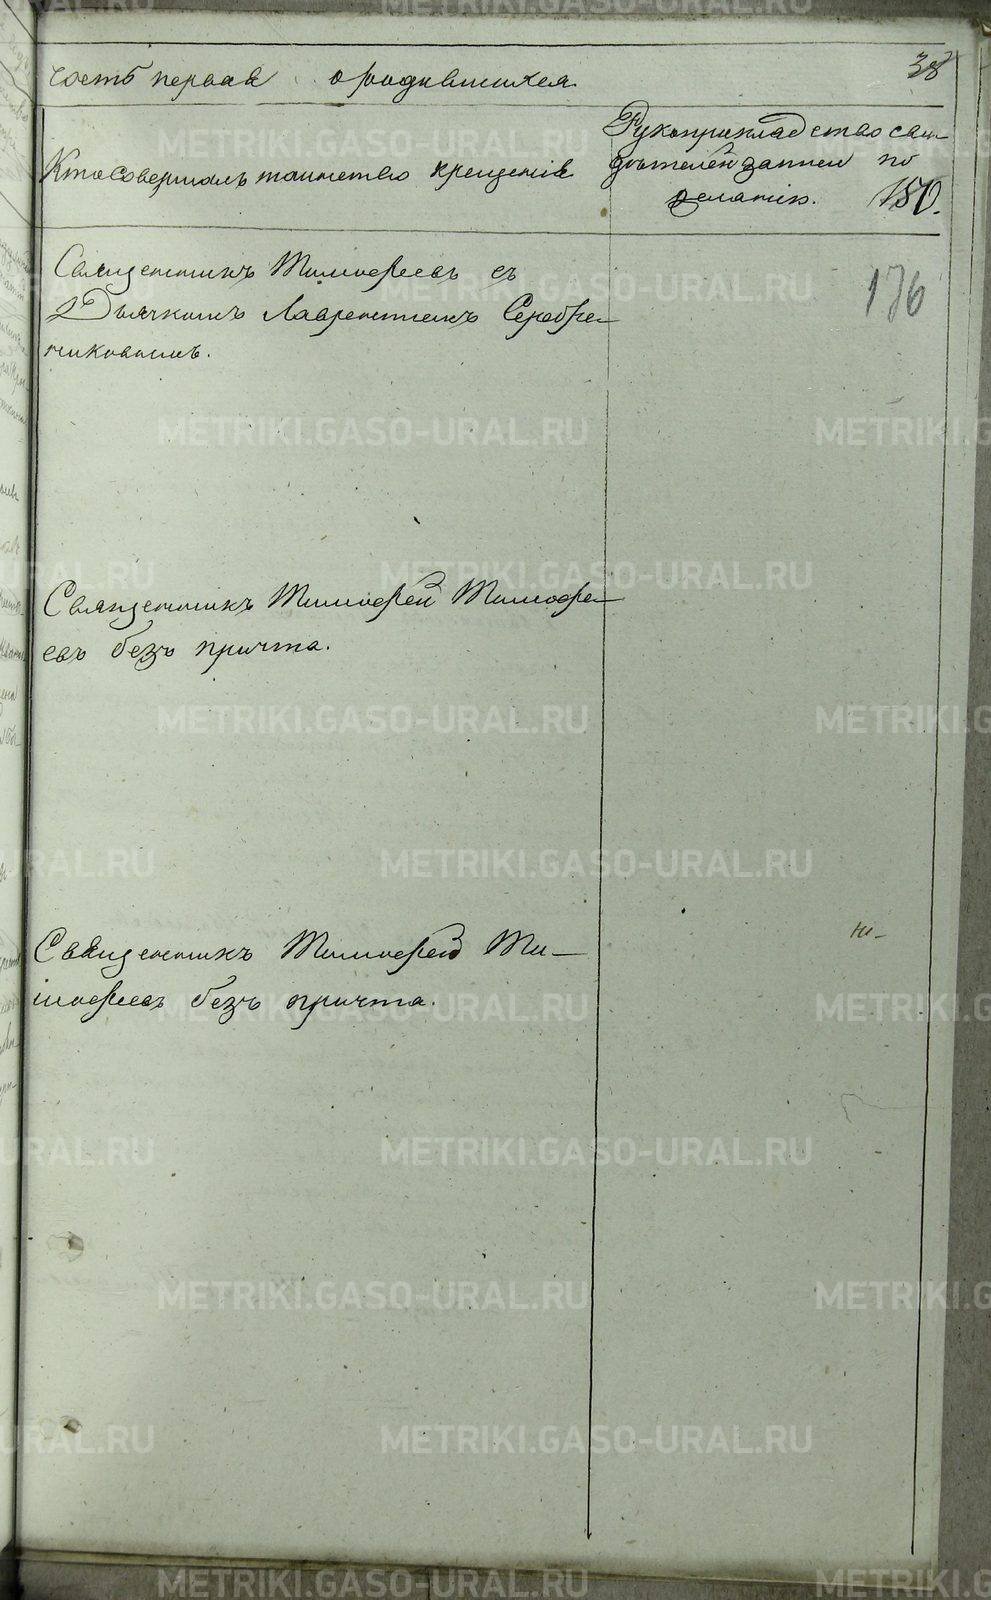 часть первая о родившихся 38
Кто совершалъ таинство крещенія
Рукоприкладство сви-
дѣтелей записи по
желанію. 150.
176
Священникъ Тимофеевъ съ
Дьячкомъ Лаврентіемъ Серебре-
никовымъ.
Священникъ Тимофей Тимофе-
евъ безъ причта.
Священникъ Тимофей Ти-
мофеевъ безъ причта.
METRIKI.GASO-URAL.RU